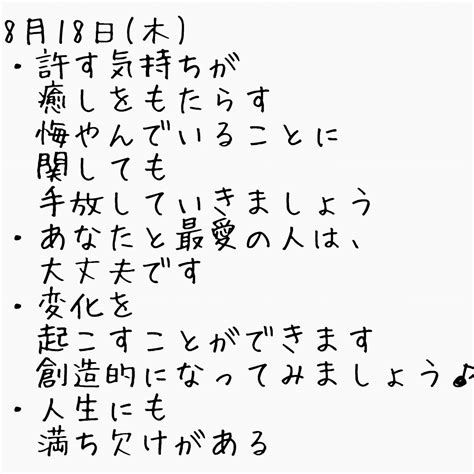 8月18日(木)
・許す気持ちが
癒しをもたらす
悔やんでいることに
関しても
手放していきましょう
・あなたと最愛の人は、
大丈夫です
・変化を
起こすことができます
創造的になってみましょう♪
・人生にも
満ち欠けがある